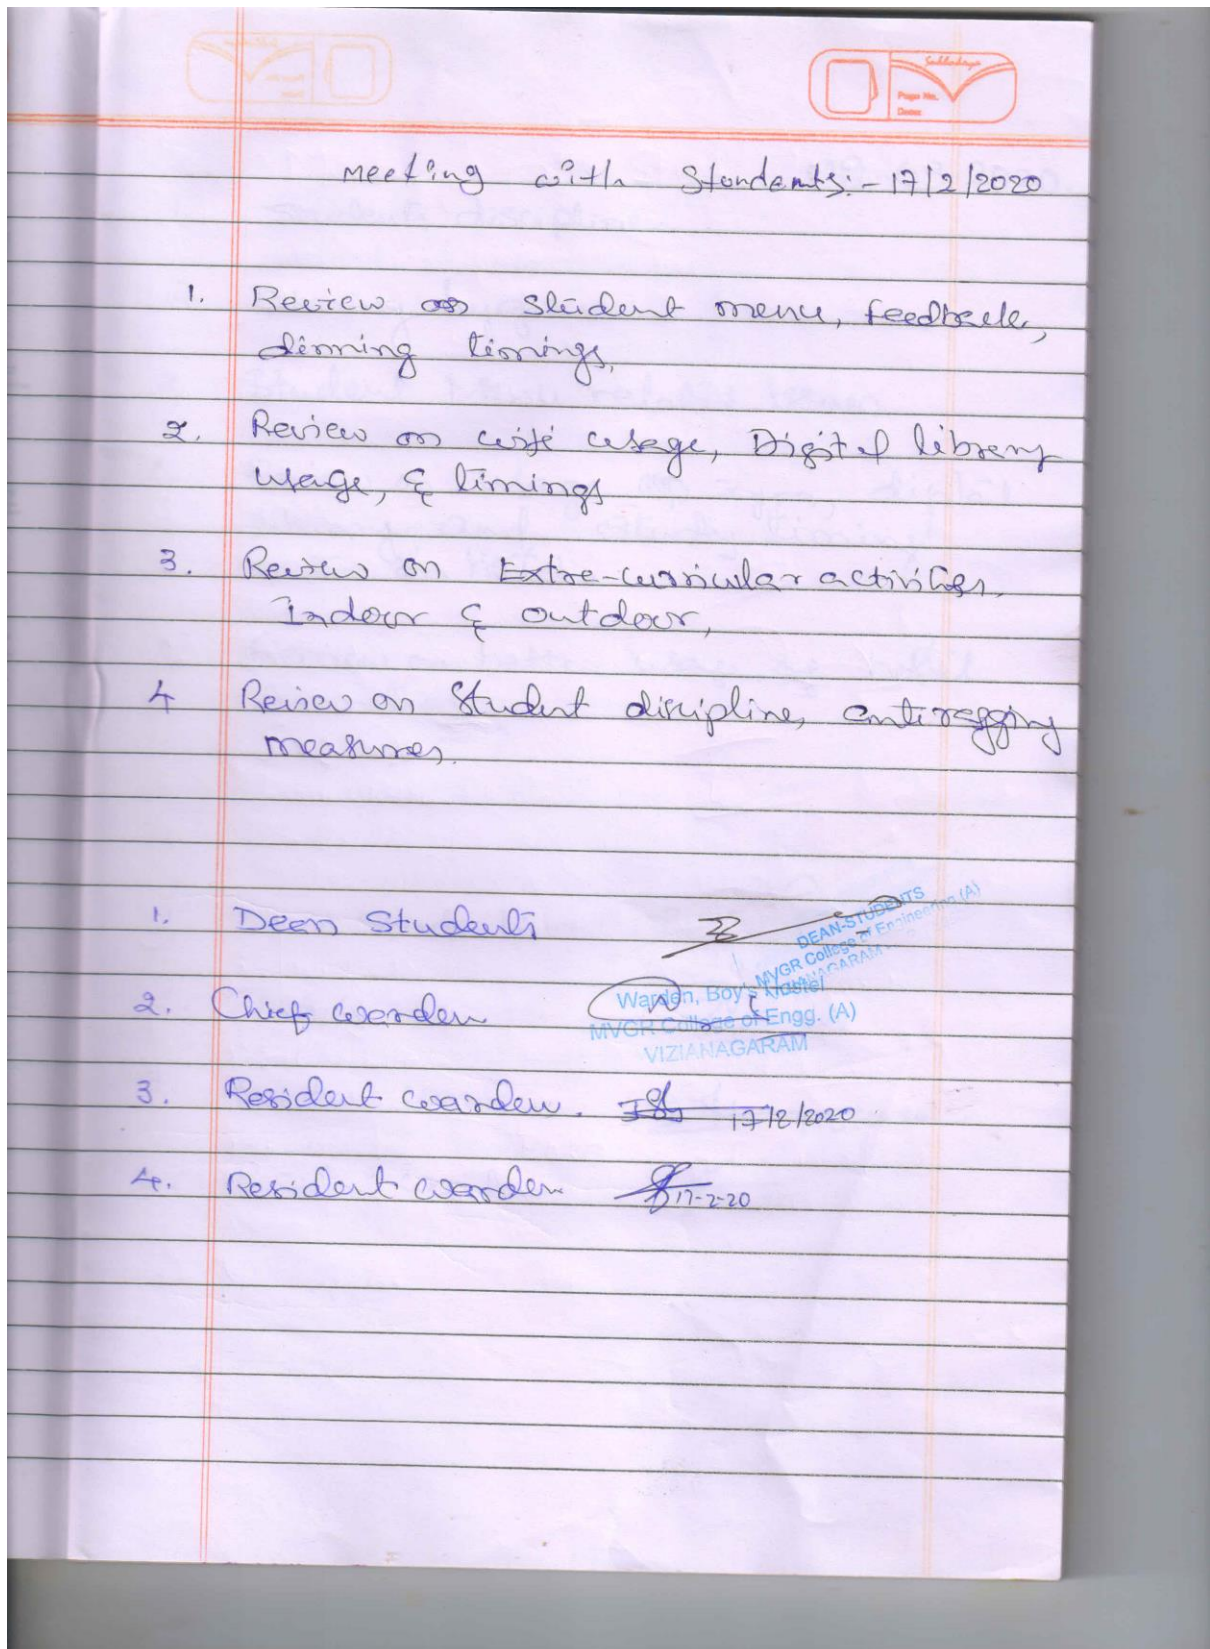 Page No.
Date
Meeting with Stondents:- 17/2/2020
1. Review on Student menu, feedback,
dinning timings.
2. Review on wifi usage, Digital library
usage, & timings
3. Review on Extra-curricular activities.
Indoor & outdoor,
4 Review on Student discipline, antiragging
measures.
1. Dean Students
DEAN-STUDENTS
MVGR College of Engineering (A)
VIZIANAGARAM
2. Chief warden
Warden, Boy's Hostel
MVGR College of Engg. (A)
VIZIANAGARAM
3. Resident warden. 17/2/2020
4. Resident warden 17-2-20